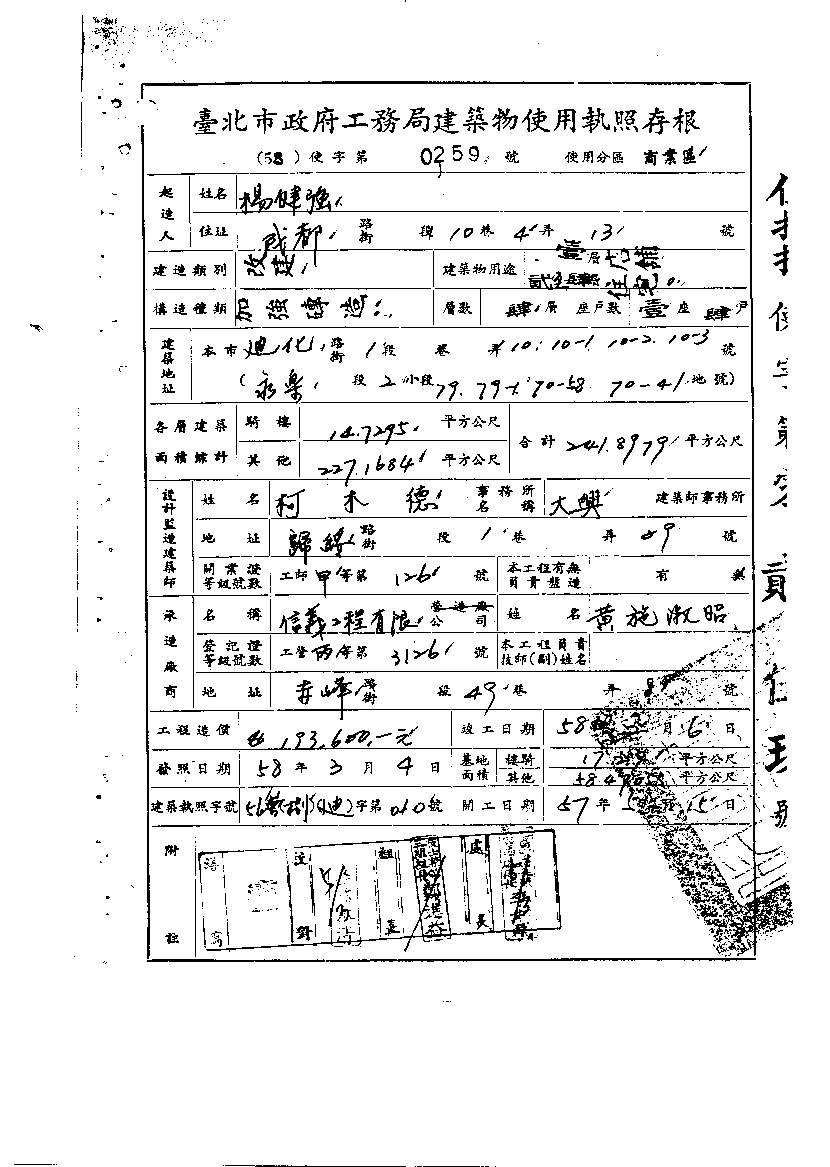 臺北市政府工務局建築物使用執照存根
(58)使字第 0259 號 使用分區 商業區
起造人 姓名 楊健強
住址 成都 路街 段 10 巷 4 弄 13 號
建造類別 改建 建築物用途 壹層店舖 貳至肆層住宅
構造種類 加強磚造 層數 肆 層 座戶數 壹 座 肆 戶
建築地址 本市 迪化 路街 1 段 巷 弄 10. 10-1. 10-2. 10-3 號
(永樂 段 2 小段 79. 79-1. 70-58. 70-41 地號)
各層建築面積總計 騎樓 14.7295 平方公尺 合計 241.8979 平方公尺
其他 227.1684 平方公尺
設計監造建築師 姓名 柯木德 事務所名稱 大興 建築師事務所
地址 歸綏 路街 段 1 巷 弄 49 號
開業證等級號數 工師 甲 等第 126 號 本工程有無負責監造 有
承造廠商 名稱 信義工程有限 營造廠公司 姓名 黃施淑昭
登記證等級號數 工營 丙 等第 3126 號 本工程負責技師(副)姓名
地址 赤峰 路街 段 49 巷 弄 號
工程造價 193,600.-元 竣工日期 58 月 6 日
發照日期 58 年 3 月 4 日 基地面積 騎樓 平方公尺
其他 平方公尺
建築執照字號 56 (迪) 字第 010 號 開工日期 57 年 5 月 15 日
附註
組長
處長